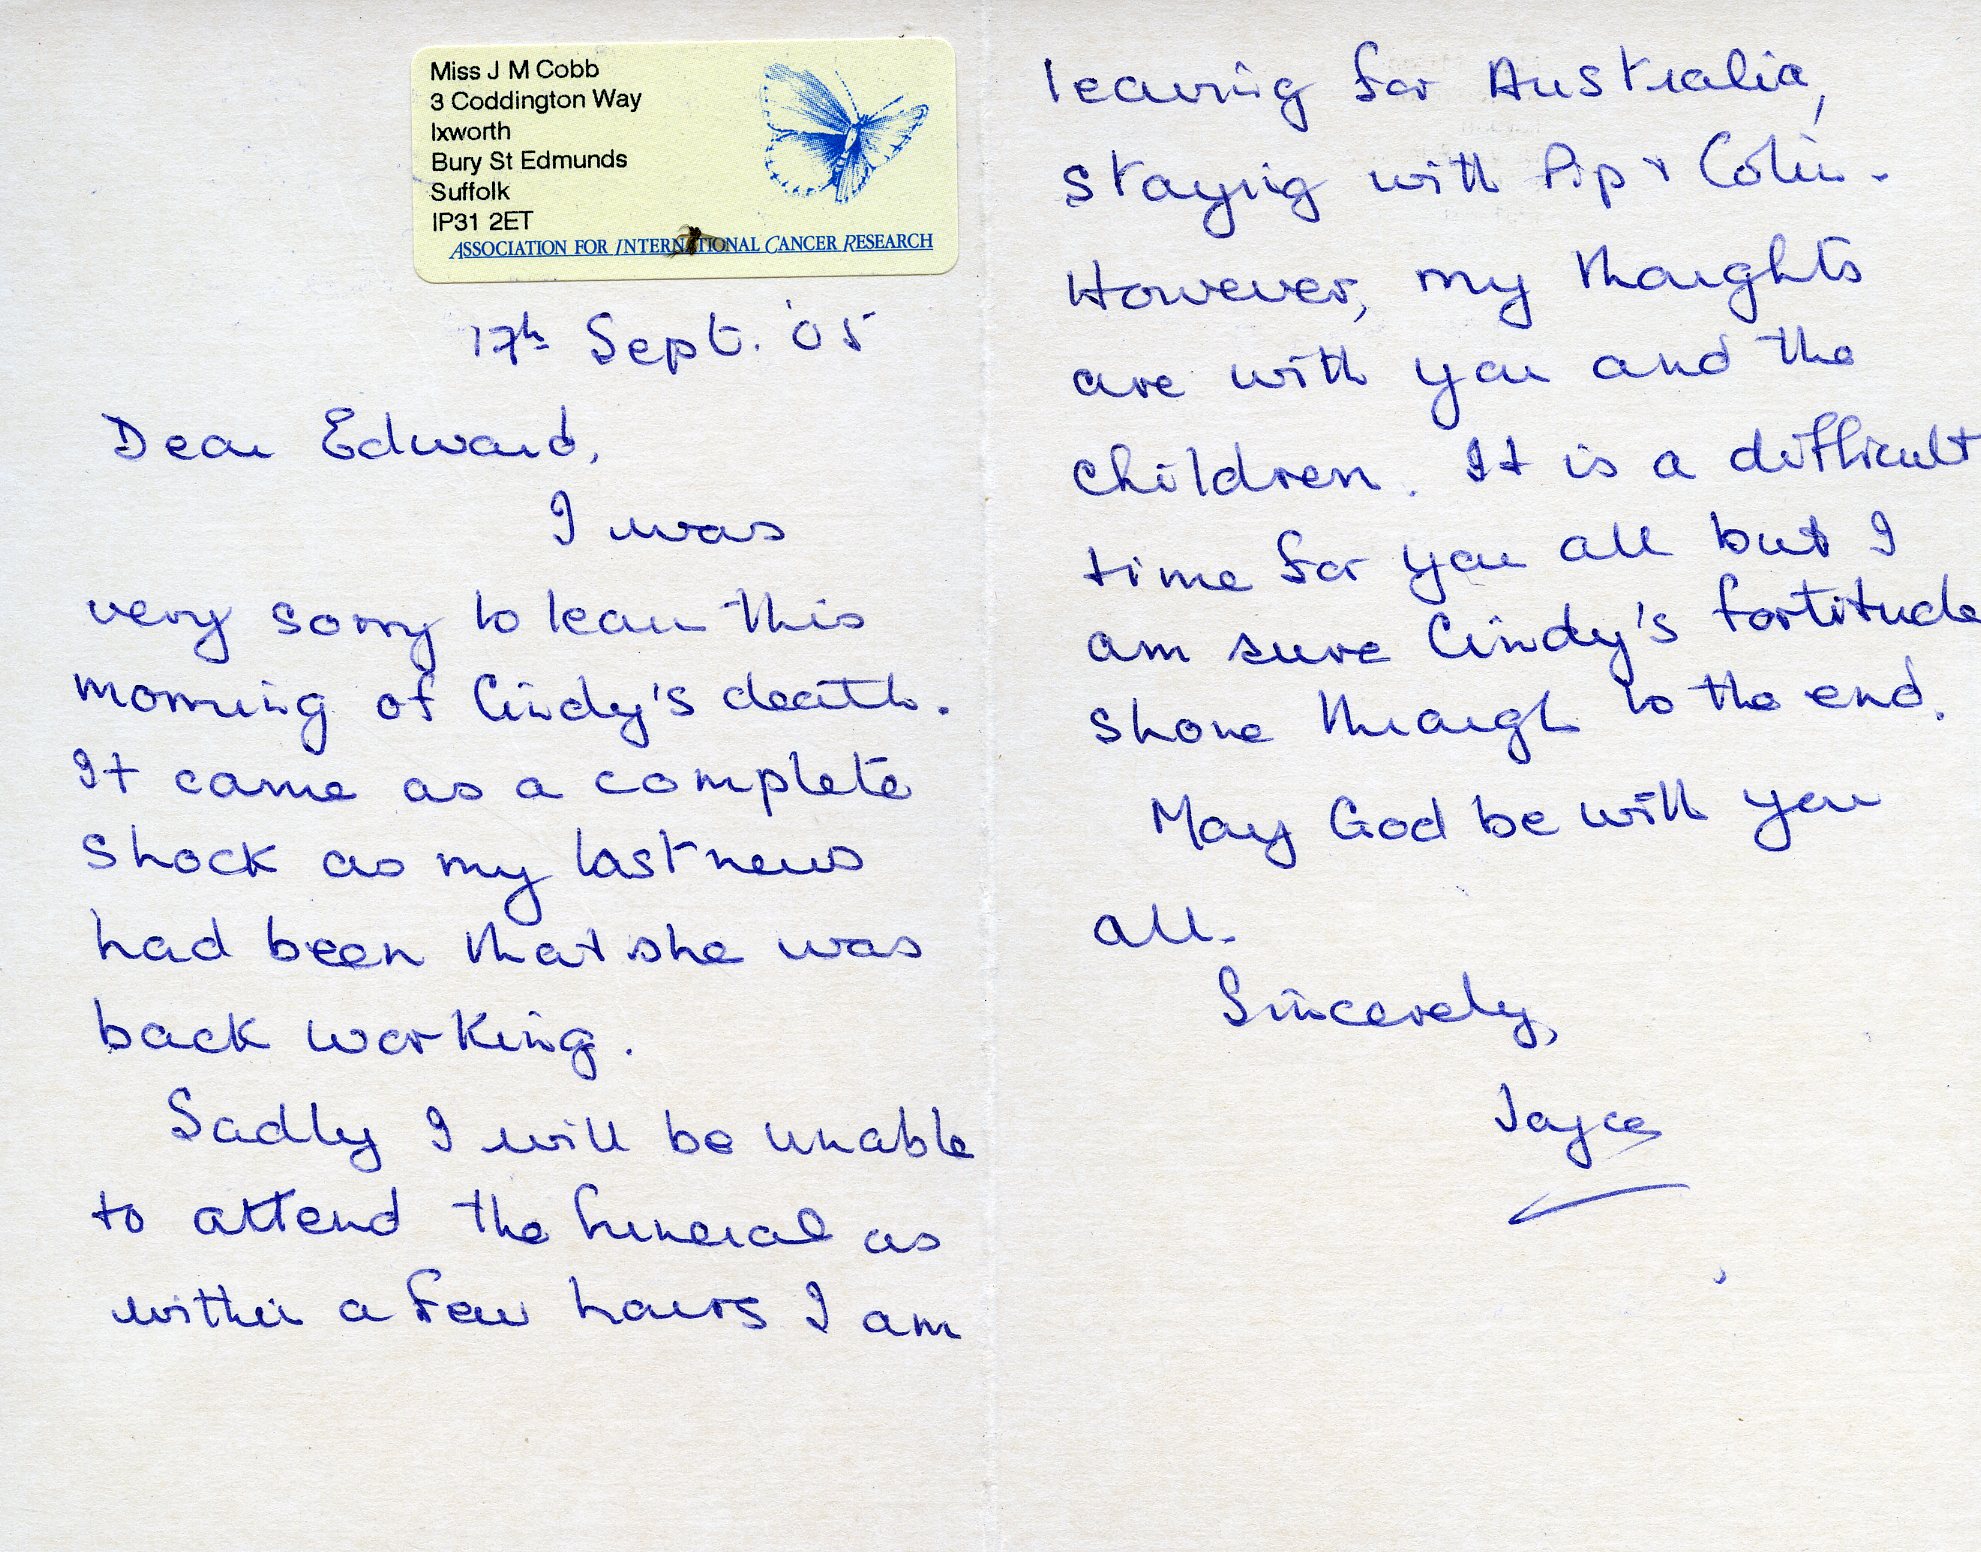 Miss J M Cobb
3 Coddington Way
Ixworth
Bury St Edmunds
Suffolk
IP31 2ET
ASSOCIATION FOR INTERNATIONAL CANCER RESEARCH
17th Sept. '05
Dear Edward,
I was
very sorry to learn this
morning of Cindy's death.
It came as a complete
shock as my last news
had been that she was
back working.
Sadly I will be unable
to attend the funeral as
within a few hours I am
leaving for Australia,
staying with Pip & Colin.
However, my thoughts
are with you and the
children. It is a difficult
time for you all but I
am sure Cindy's fortitude
shone through to the end.
May God be with you
all.
Sincerely,
Joyce